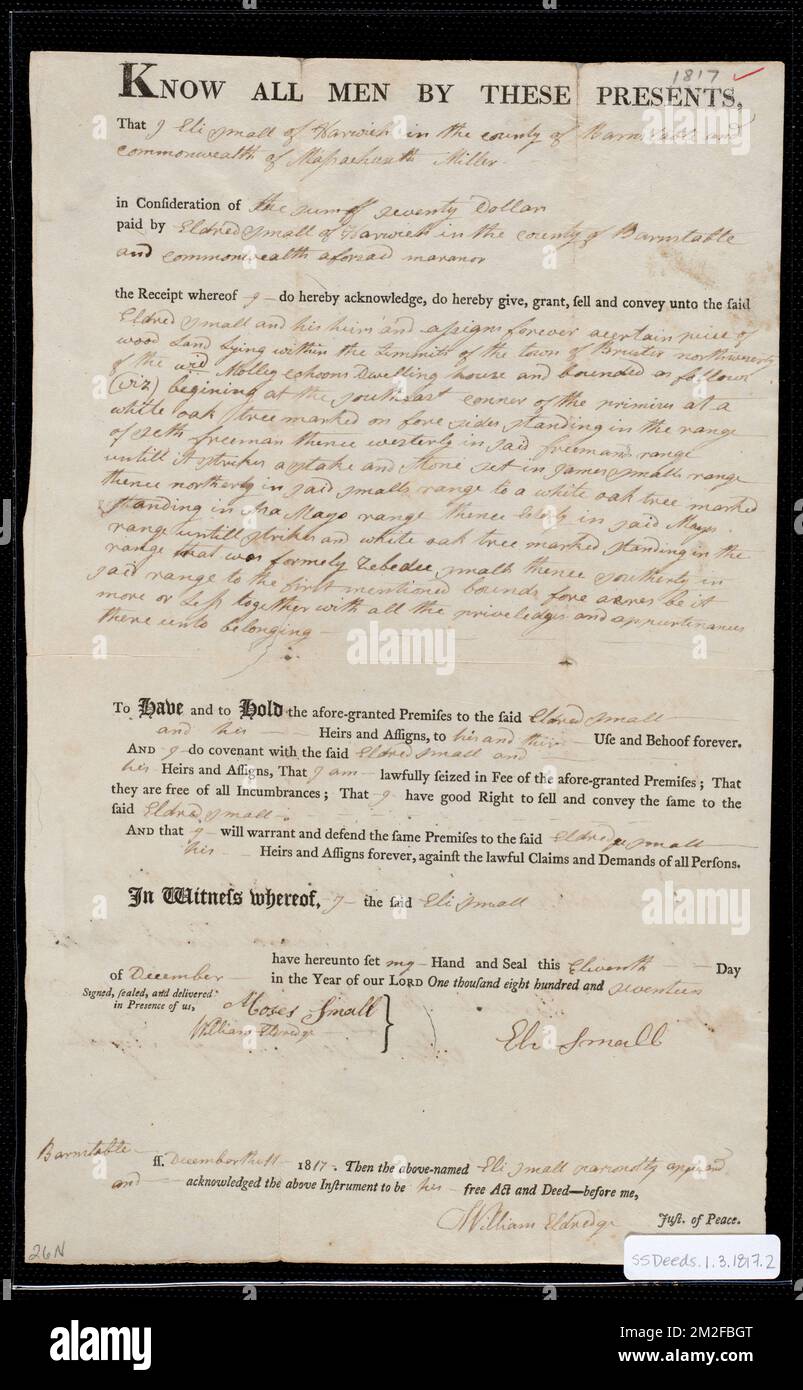 1817 ✓
KNOW ALL MEN BY THESE PRESENTS,
That I Eli Small of Harwich in the county of Barnstable and
commonwealth of Massachusetts Miller
in Consideration of the sum of seventy Dollar
paid by Eldred Small of Harwich in the county of Barnstable
and commonwealth aforsaid maranor
the Receipt whereof I do hereby acknowledge, do hereby give, grant, sell and convey unto the said
Eldred Small and his heirs and assigns forever a certain peice of
wood Land Lying within the Limmits of the town of Bruster northwesterly
of the wid Molley Dwelling house and bounded as follows
(viz) begining at the southeast conner of the primises at a
white oak tree marked on fore sides standing in the range
of Seth freeman thence westerly in said freemans range
untill it strikes a stake and stone set in James Smalls range
thence northerly in said smalls range to a white oak tree marked
standing in Asa Mayo range thence Esterly in said Mayos
range untill strikes and white oak tree marked standing in the
range that was formely Zebedee Smalls thence southerly in
said range to the first mentioned bounds fore acres be it
more or Less together with all the priveledges and appurtinances
there unto belonging
To Have and to Hold the afore-granted Premises to the said Eldred Small
and his Heirs and Assigns, to his and their Use and Behoof forever.
AND I do covenant with the said Eldred Small and
his Heirs and Assigns, That I am lawfully seized in Fee of the afore-granted Premises; That
they are free of all Incumbrances; That I have good Right to sell and convey the same to the
said Eldred Small
AND that I will warrant and defend the same Premises to the said Eldredge Small
his Heirs and Assigns forever, against the lawful Claims and Demands of all Persons.
In Witness whereof, I the said Eli Small
have hereunto set my Hand and Seal this Eleventh Day
of December in the Year of our LORD One thousand eight hundred and seventeen
Signed, sealed, and delivered
in Presence of us,
Moses Small
William Eldredge
Eli Small
Barnstable ss. December the 11 1817. Then the above-named Eli Small parsonelly appeard
and acknowledged the above Instrument to be his free Act and Deed—before me,
William Eldredge Just. of Peace.
26N
SSDeeds.1.3.1817.2
alamy
alamy
Image ID: 2M2FBGT
www.alamy.com